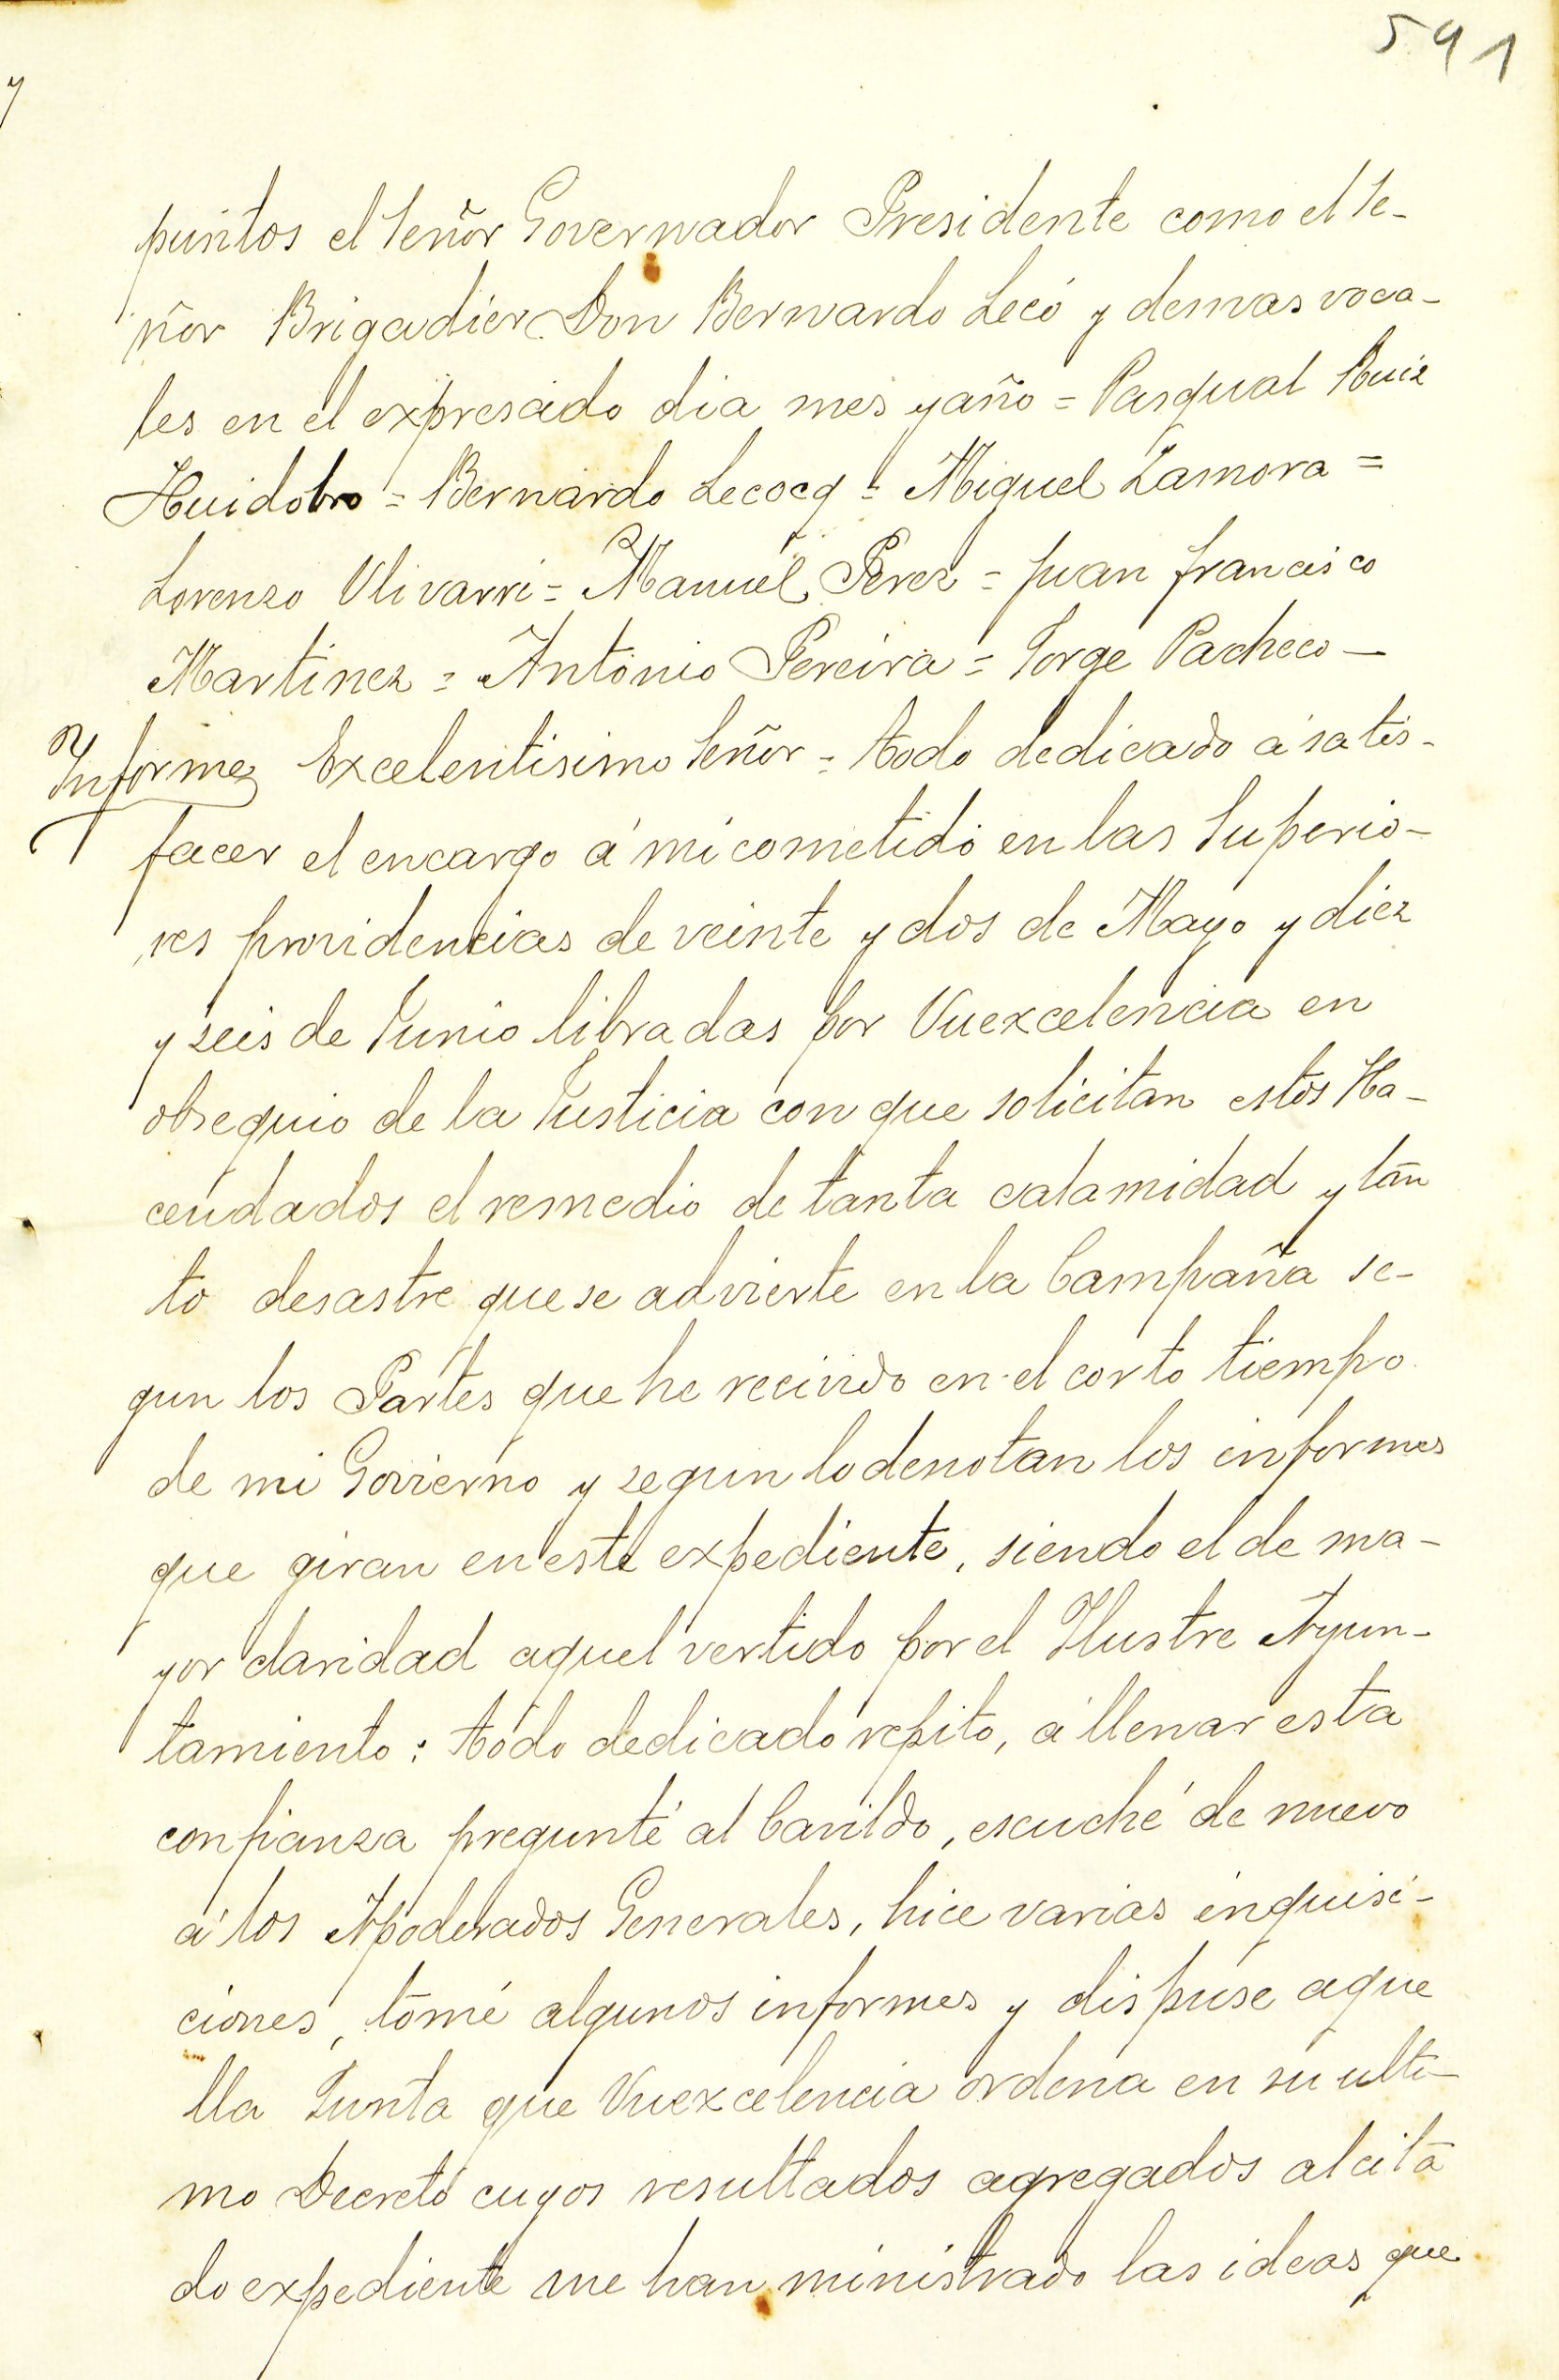 591
y
puntos el Señor Governador Presidente como el Se-
ñor Brigadier Don Bernardo Lecó y demas voca-
les en el expresado dia mes y año = Pasqual Ruiz
Huidobro = Bernardo Lecocq = Miguel Zamora =
Lorenzo Ulivarri = Manuel Perez = Juan francisco
Martinez = Antonio Pereira = Jorge Pacheco —
Informe Excelentisimo Señor = todo dedicado á satis-
facer el encargo á mi cometido en las Superio-
res providencias de veinte y dos de Mayo y diez
y seis de Junio libradas por Vuexcelencia en
obsequio de la Justicia con que solicitan estos Ha-
cendados el remedio de tanta calamidad y tan
to desastre que se advierte en la Campaña se-
gun los Partes que he recivido en el corto tiempo
de mi Govierno y segun lo denotan los informes
que giran en este expediente, siendo el de ma-
yor claridad aquel vertido por el Ilustre Ayun-
tamiento: todo dedicado repito, á llenar esta
confianza pregunté al Cavildo, escuché de nuevo
á los Apoderados Generales, hice varias inquisi-
ciones, tomé algunos informes y dispuse aque
lla Junta que Vuexcelencia ordena en su ulti-
mo Decreto cuyos resultados agregados al cita
do expediente me han ministrado las ideas que